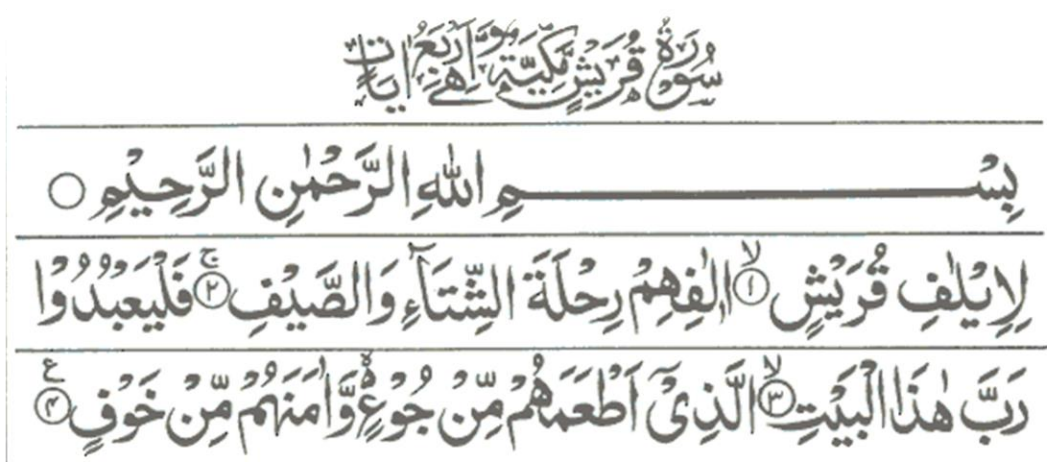 سُوْرَةُ قُرَيْشٍ مَّكِّيَّةٌ وَّهِيَ اَرْبَعُ اٰيَاتٍ
بِسْمِ اللهِ الرَّحْمٰنِ الرَّحِيْمِ ○
لِاِيْلٰفِ قُرَيْشٍ ۙ﴿۱﴾ اٖلٰفِهِمْ رِحْلَةَ الشِّتَآءِ وَالصَّيْفِ ۚ﴿۲﴾ فَلْيَعْبُدُوْا
رَبَّ هٰذَا الْبَيْتِ ۙ﴿۳﴾ الَّذِيْٓ اَطْعَمَهُمْ مِّنْ جُوْعٍ ۙ۬ وَّاٰمَنَهُمْ مِّنْ خَوْفٍ ﴿۴﴾ ع